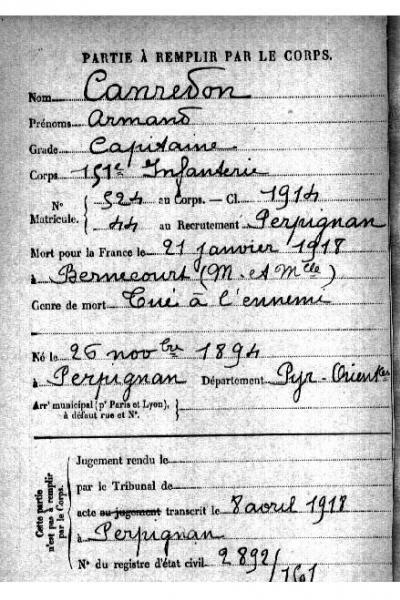 PARTIE À REMPLIR PAR LE CORPS.
Nom Canredon
Prénoms Armand
Grade Capitaine
Corps 151e Infanterie
N° 524 au Corps. — Cl. 1914
Matricule. 44 au Recrutement Perpignan
Mort pour la France le 21 janvier 1918
à Bernecourt (M. et Mlle)
Genre de mort Tué à l'ennemi
Né le 26 novbre 1894
à Perpignan Département Pyr-Orientles
Arr' municipal (p' Paris et Lyon),
à défaut rue et N°.
Cette partie
n'est pas à remplir
par le Corps.
Jugement rendu le
par le Tribunal de
acte ou jugement transcrit le 8 avril 1918
à Perpignan
N° du registre d'état civil 2892/